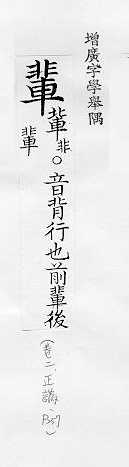 增廣字學舉隅
輩
輩非○音背行也前輩後
輩
(卷二、正譌、